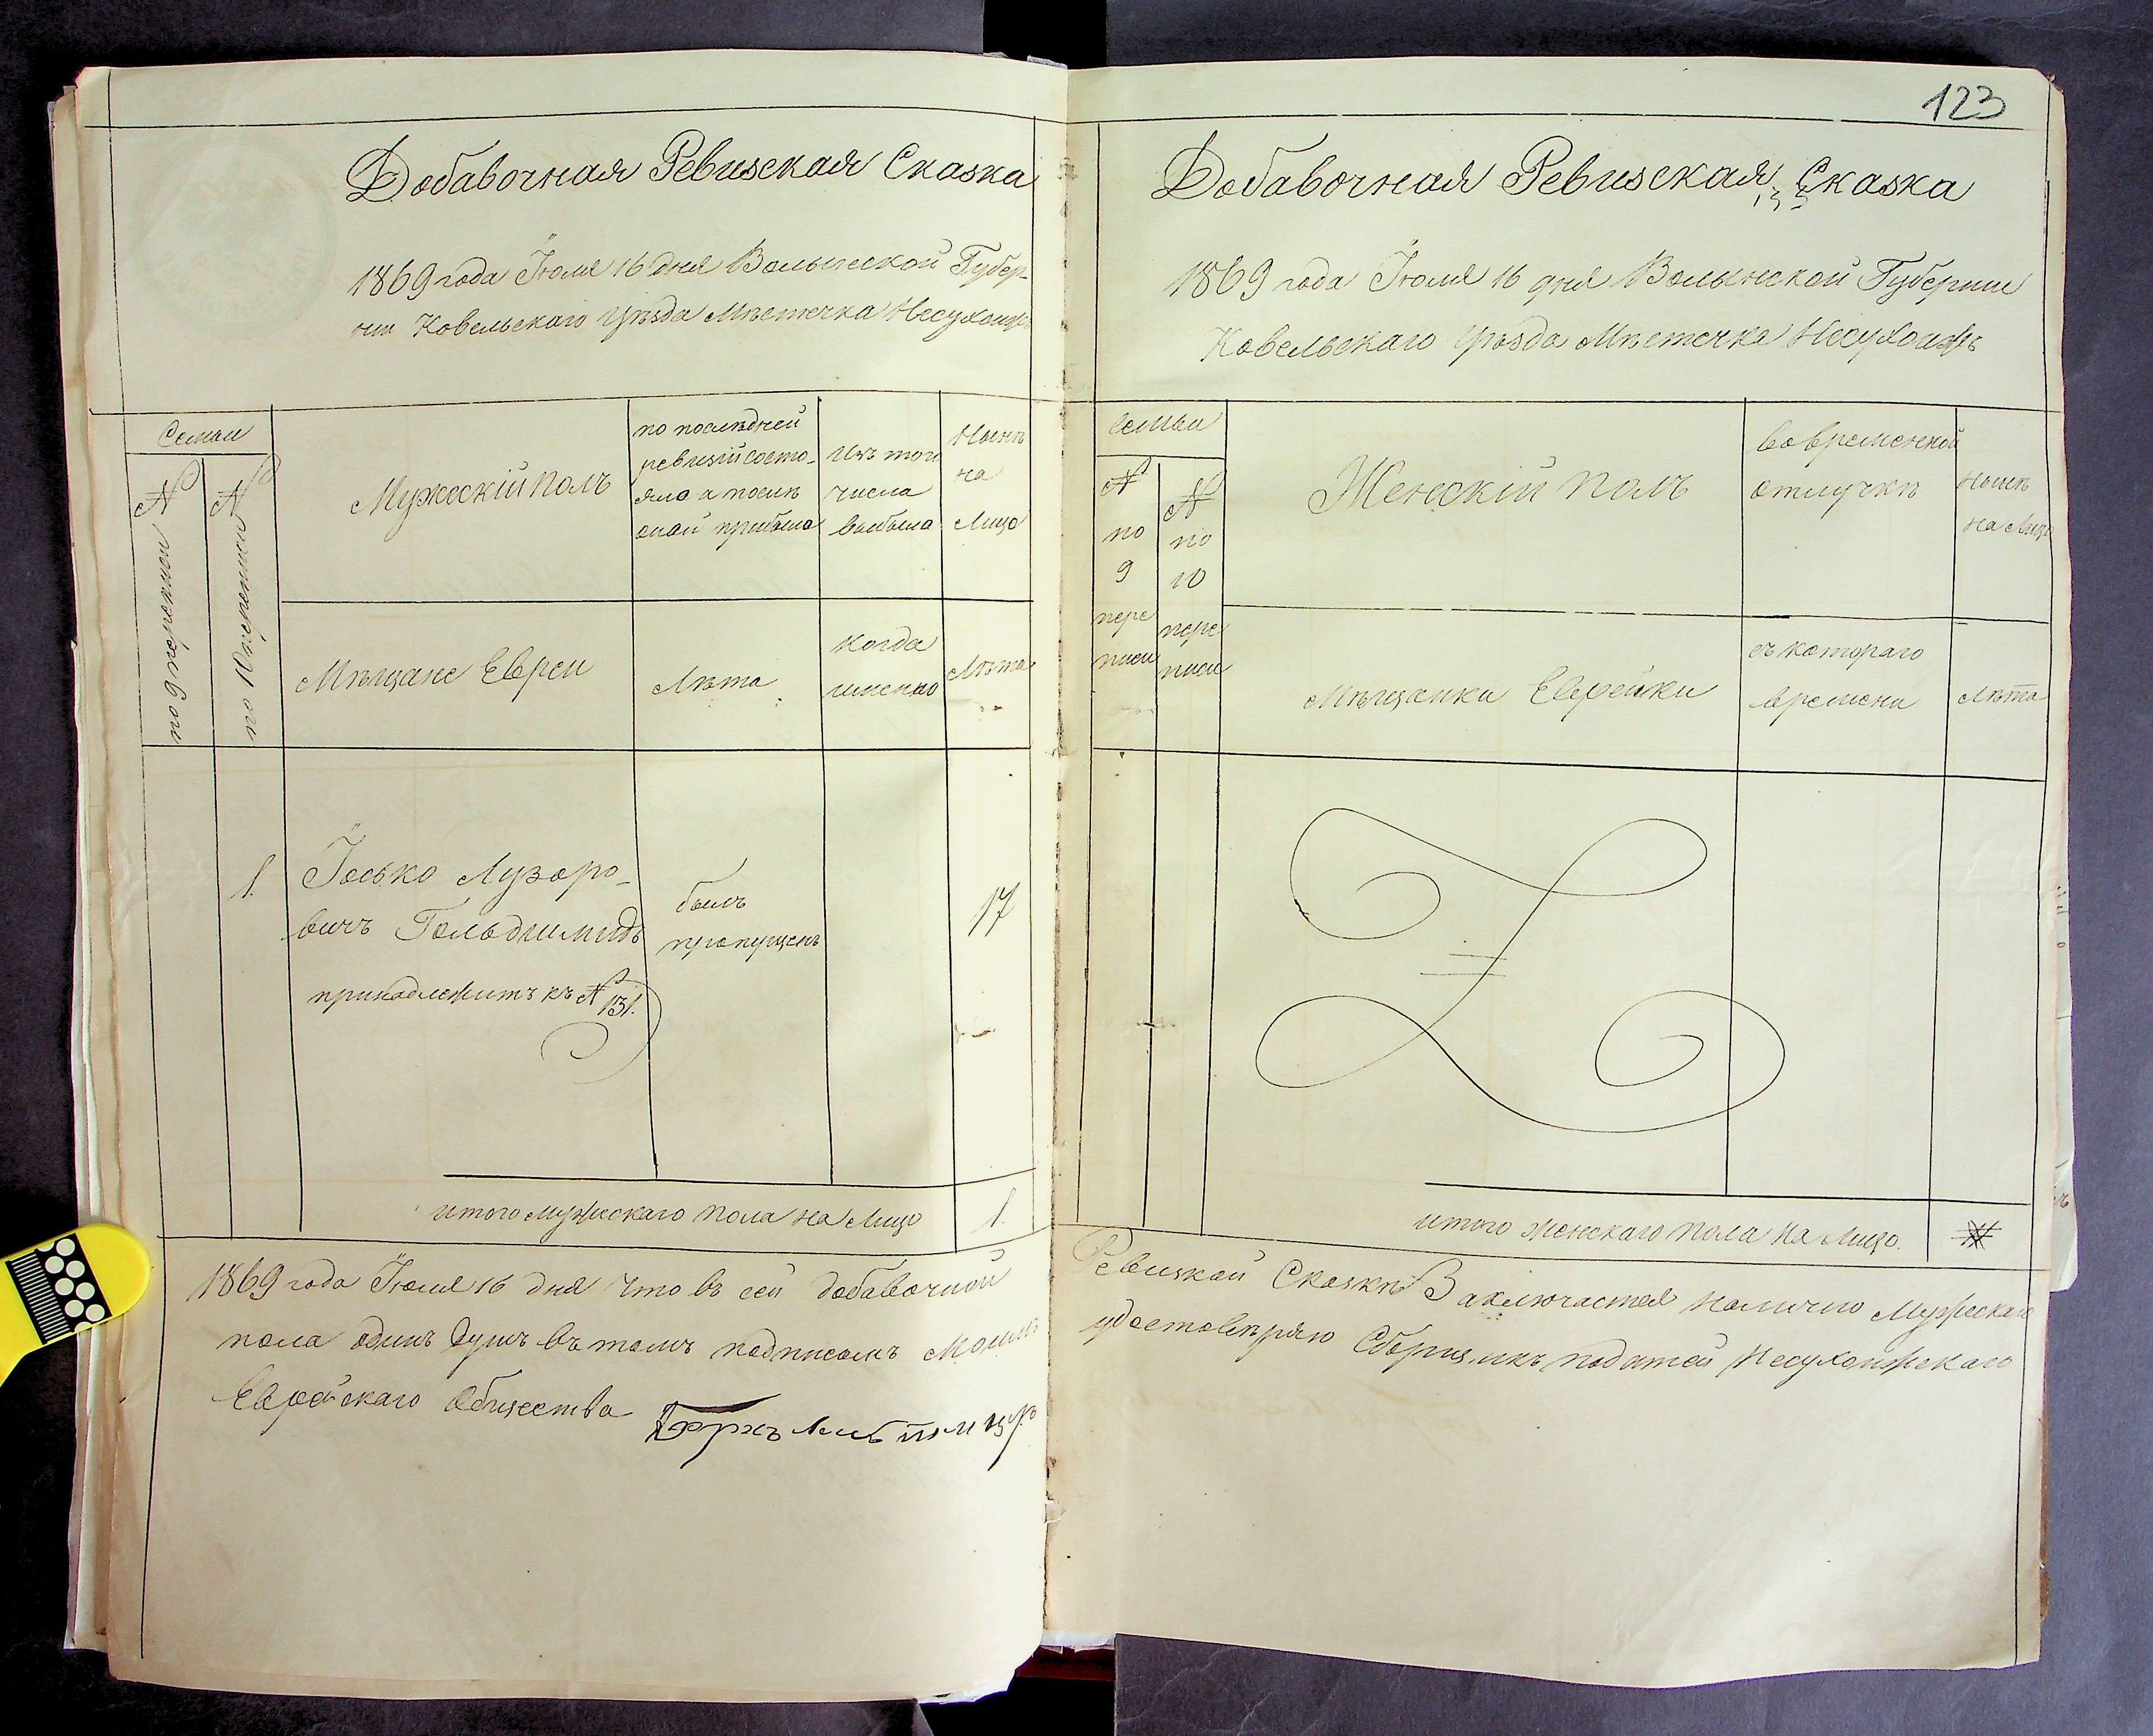 Добавочная Ревизская Сказка
1869 года Іюля 16 дня Волынской Губер-
ніи Ковельскаго Уѣзда Мѣстечка Несухоижъ
Семьи
№ по 9 переписи
№ по 10 переписи
Мужескій полъ
по послѣдней
ревизіи состо-
яло и послѣ
оной прибыло
Изъ того
числа
выбыло
Нынѣ
на
Лицо
Мѣщане Евреи
Лѣта
когда
именно
Лѣта
1.
Іосько Лузоро-
вичъ Гольдшмидъ
принадлежитъ къ № 131.
былъ
пропущенъ
17
итого мужескаго пола на Лицо
1.
123
Добавочная Ревизская Сказка
1869 года Іюля 16 дня Волынской Губерніи
Ковельскаго Уѣзда Мѣстечка Несухоижъ
Семьи
№
по
9
пере
писи
№
по
10
пере
писи
Женскій полъ
Во временной
отлучкѣ
Нынѣ
на Лицо
Мѣщанки Еврейки
съ котораго
времени
Лѣта
итого женскаго пола на Лицо.
1869 года Іюля 16 дня что въ сей добавочной Ревизкой Сказкѣ Заключается налично Мужескаго
пола одинъ душъ въ томъ подписомъ моимъ удостовѣряю Сборщикъ податей Несухоижскаго
Еврейскаго Общества